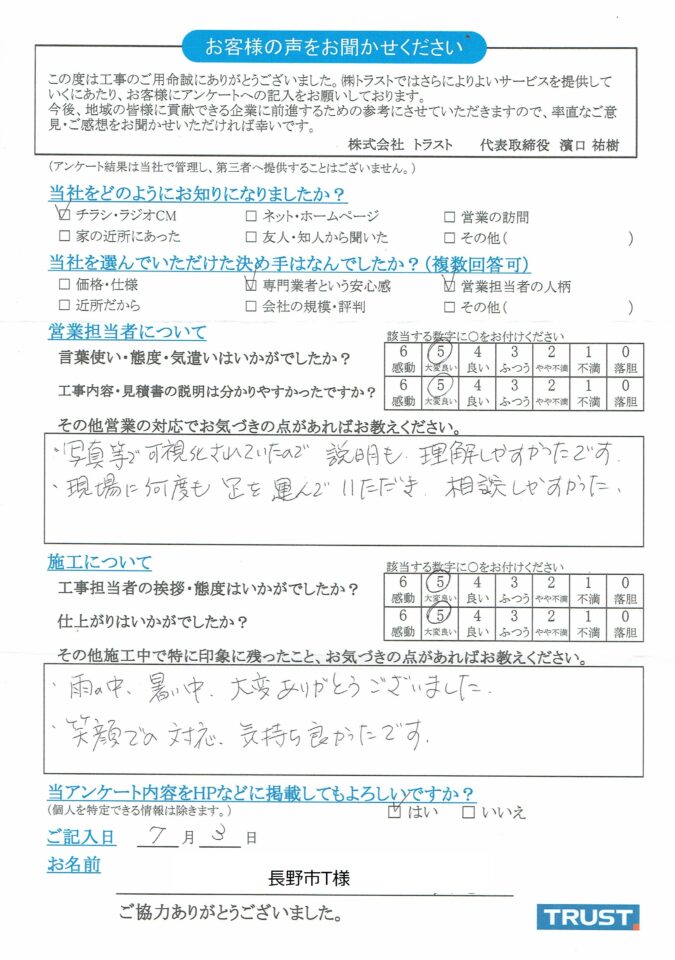 お客様の声をお聞かせください
この度は工事のご用命誠にありがとうございました。㈱トラストではさらによりよいサービスを提供して
いくにあたり、お客様にアンケートへの記入をお願いしております。
今後、地域の皆様に貢献できる企業に前進するための参考にさせていただきますので、率直なご意
見・ご感想をお聞かせいただければ幸いです。
株式会社 トラスト　代表取締役 濱口 祐樹
(アンケート結果は当社で管理し、第三者へ提供することはございません。)
当社をどのようにお知りになりましたか？
☑ チラシ・ラジオCM　□ ネット・ホームページ　□ 営業の訪問
□ 家の近所にあった　□ 友人・知人から聞いた　□ その他(　)
当社を選んでいただけた決め手はなんでしたか？(複数回答可)
□ 価格・仕様　☑ 専門業者という安心感　☑ 営業担当者の人柄
□ 近所だから　□ 会社の規模・評判　□ その他(　)
営業担当者について　該当する数字に○をお付けください
言葉使い・態度・気遣いはいかがでしたか？　6 5 4 3 2 1 0
感動 大変良い 良い ふつう やや不満 不満 落胆
工事内容・見積書の説明は分かりやすかったですか？　6 5 4 3 2 1 0
感動 大変良い 良い ふつう やや不満 不満 落胆
その他営業の対応でお気づきの点があればお教えください。
・写真等で可視化されていたので 説明も 理解しやすかったです.
・現場に何度も 足を 運んでいただき. 相談しやすかった.
施工について　該当する数字に○をお付けください
工事担当者の挨拶・態度はいかがでしたか？　6 5 4 3 2 1 0
感動 大変良い 良い ふつう やや不満 不満 落胆
仕上がりはいかがでしたか？　6 5 4 3 2 1 0
感動 大変良い 良い ふつう やや不満 不満 落胆
その他施工中で特に印象に残ったこと、お気づきの点があればお教えください。
・雨の中、暑い中、大変ありがとうございました.
・笑顔での 対応、気持ち良かったです.
当アンケート内容をHPなどに掲載してもよろしいですか？
(個人を特定できる情報は除きます。)　☑ はい　□ いいえ
ご記入日　7 月 3 日
お名前
長野市T様
ご協力ありがとうございました。
TRUST